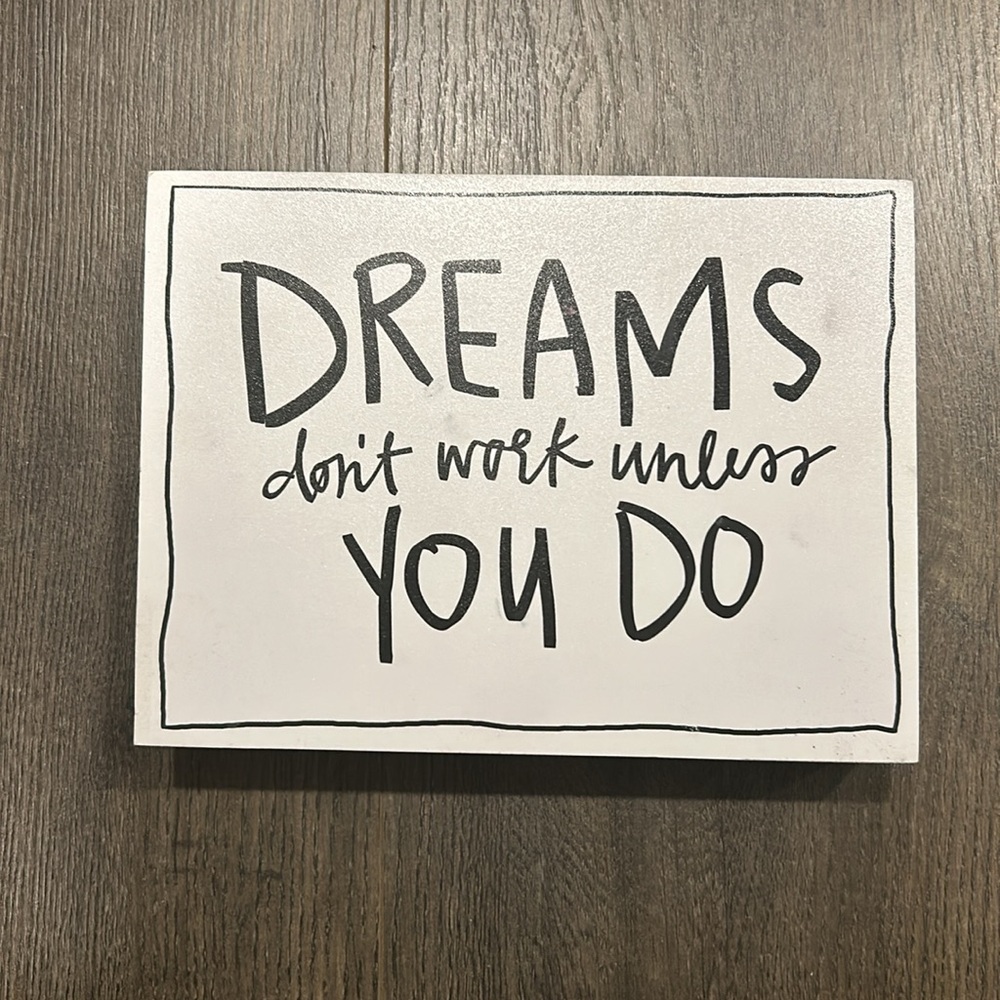 DREAMS
don't work unless
YOU DO